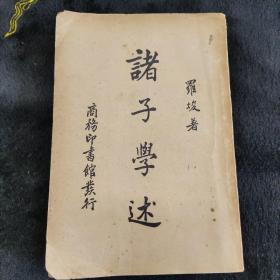 羅焌著
諸子學述
商務印書館發行